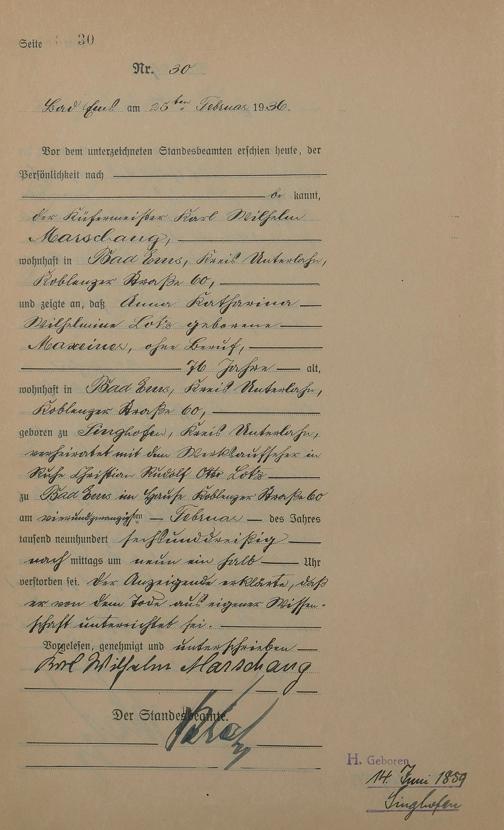 Seite 30
Nr. 30
Bad Ems am 25ten Februar 1936.
Vor dem unterzeichneten Standesbeamten erschien heute, der
Persönlichkeit nach
be kannt,
der Küfermeister Karl Wilhelm
Marschang,
wohnhaft in Bad Ems, Kreis Unterlahn,
Koblenzer Straße 60,
und zeigte an, daß Anna Katharina
Wilhelmine Lotz geborene
Maxeiner, ohne Beruf,
76 Jahre alt,
wohnhaft in Bad Ems, Kreis Unterlahn,
Koblenzer Straße 60,
geboren zu Singhofen, Kreis Unterlahn,
verheiratet mit dem Werksaufseher in
Ruhe Christian Rudolf Otto Lotz
zu Bad Ems im Hause Koblenzer Straße 60
am vierundzwanzigsten Februar des Jahres
tausend neunhundert sechsunddreißig
nach mittags um neun ein halb Uhr
verstorben sei. Der Anzeigende erklärte, daß
er von dem Tode aus eigener Wissen-
schaft unterrichtet sei.
Vorgelesen, genehmigt und unterschrieben
Karl Wilhelm Marschang
Der Standesbeamte.
H. Geboren
14. Juni 1859
Singhofen